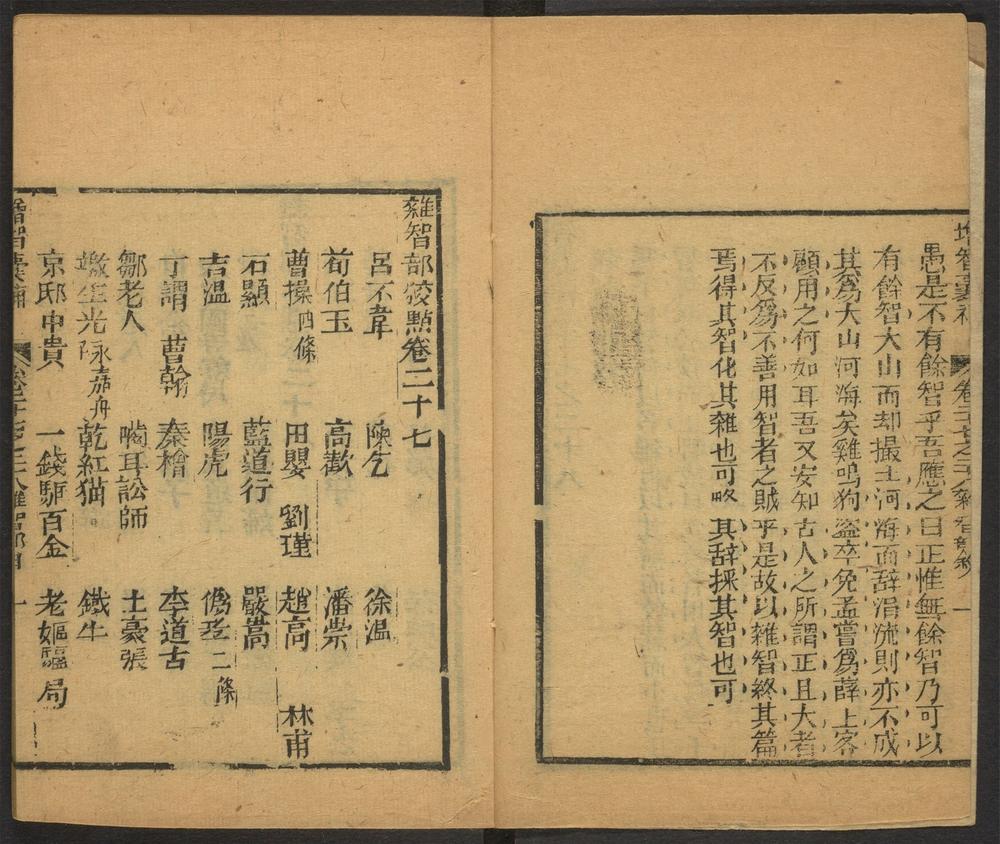 增智囊補 卷二十七之二十八 雜智部 一
愚是不有餘智乎吾應之曰正惟無餘智乃可以
有餘智大山而却撮土河海而辭涓流則亦不成
其爲大山河海矣雞鳴狗盗卒免孟嘗爲薛上客
顧用之何如耳吾又安知古人之所謂正且大者
不反爲不善用智者之賊乎是故以雜智終其篇
焉得其智化其雜也可略其辭採其智也可
雜智部狡黠卷二十七
呂不韋 陳乞 徐溫
荀伯玉 高歡 潘崇
曹操四條 田嬰 劉瑾 趙高 林甫
石顯 藍道行 嚴嵩
吉溫 陽虎 僞 二條
丁謂 曹翰 秦檜 李道古
鄒老人 嚙耳訟師 土豪張
嫩生光 永嘉舟 乾紅猫 鐵牛
京邸中貴 一錢驢百金 老嫗騙局
增智囊補 卷二十七之二十八 雜智部目 一